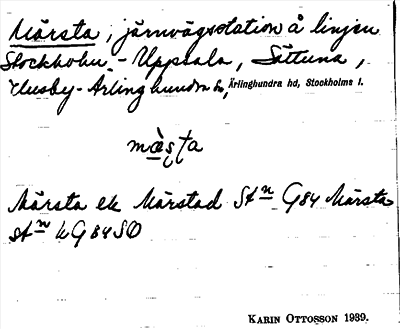 Märsta, järnvägsstation å linjen
Stockholm - Uppsala, Sättuna,
Husby-Ärlinghundra sn, Ärlinghundra hd, Stockholms l.
mæ̀sta
Märsta ek Märstad Stn G84 Märsta
stn k G84SO
KARIN OTTOSSON 1939.